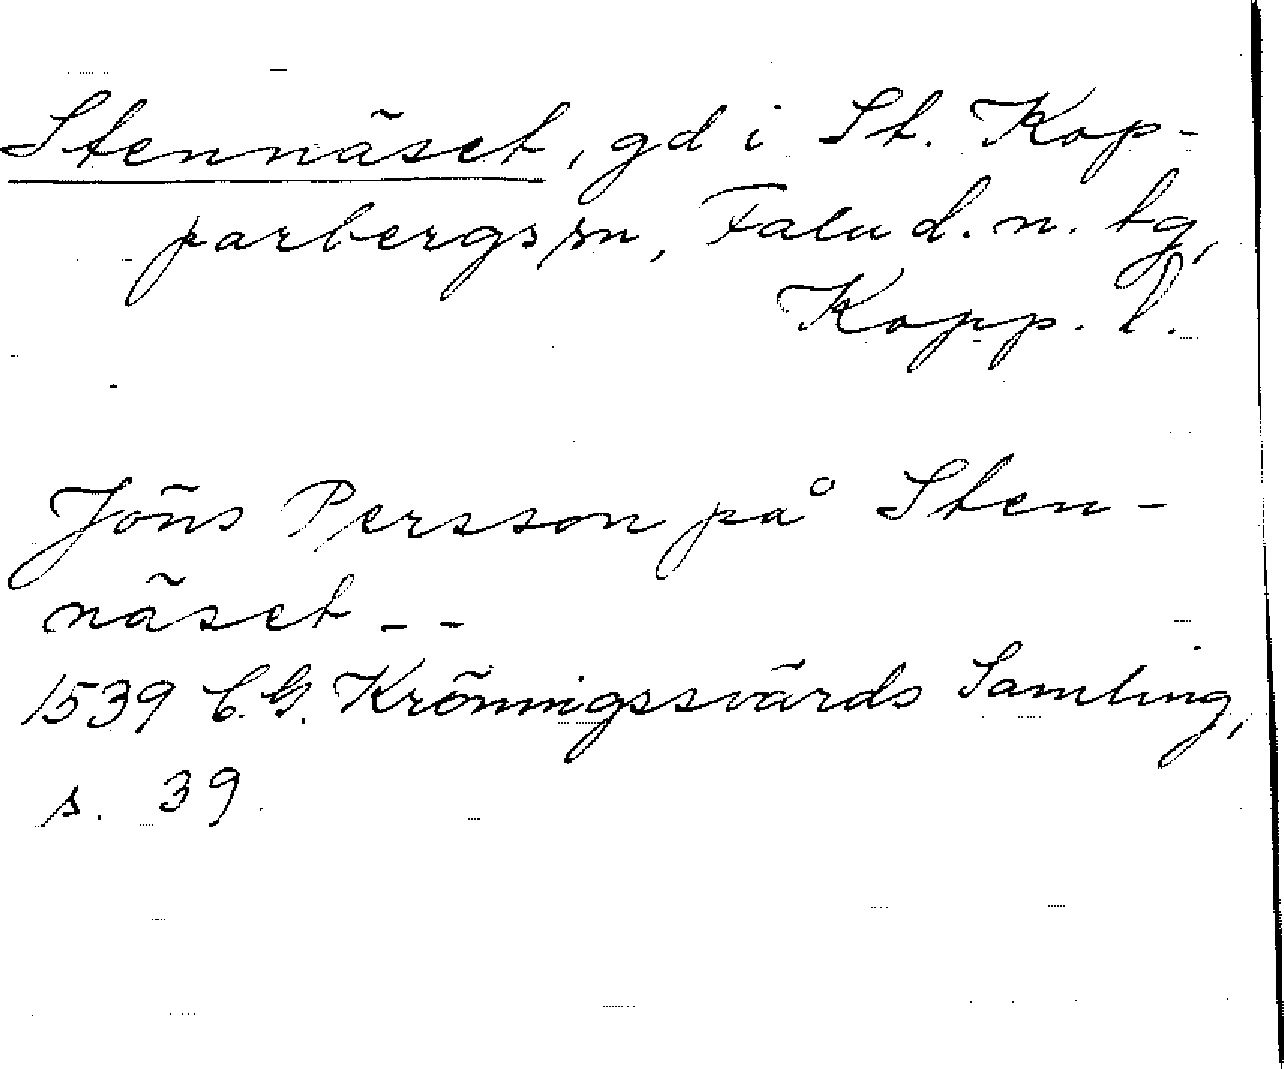 Stennäset, gd i St. Kop-
parbergs sn, Falu d. n. tg,
Kopp. l.
Jöns Persson på Sten-
näset - -
1539 C. G. Kröningssvärds Samling,
s. 39.